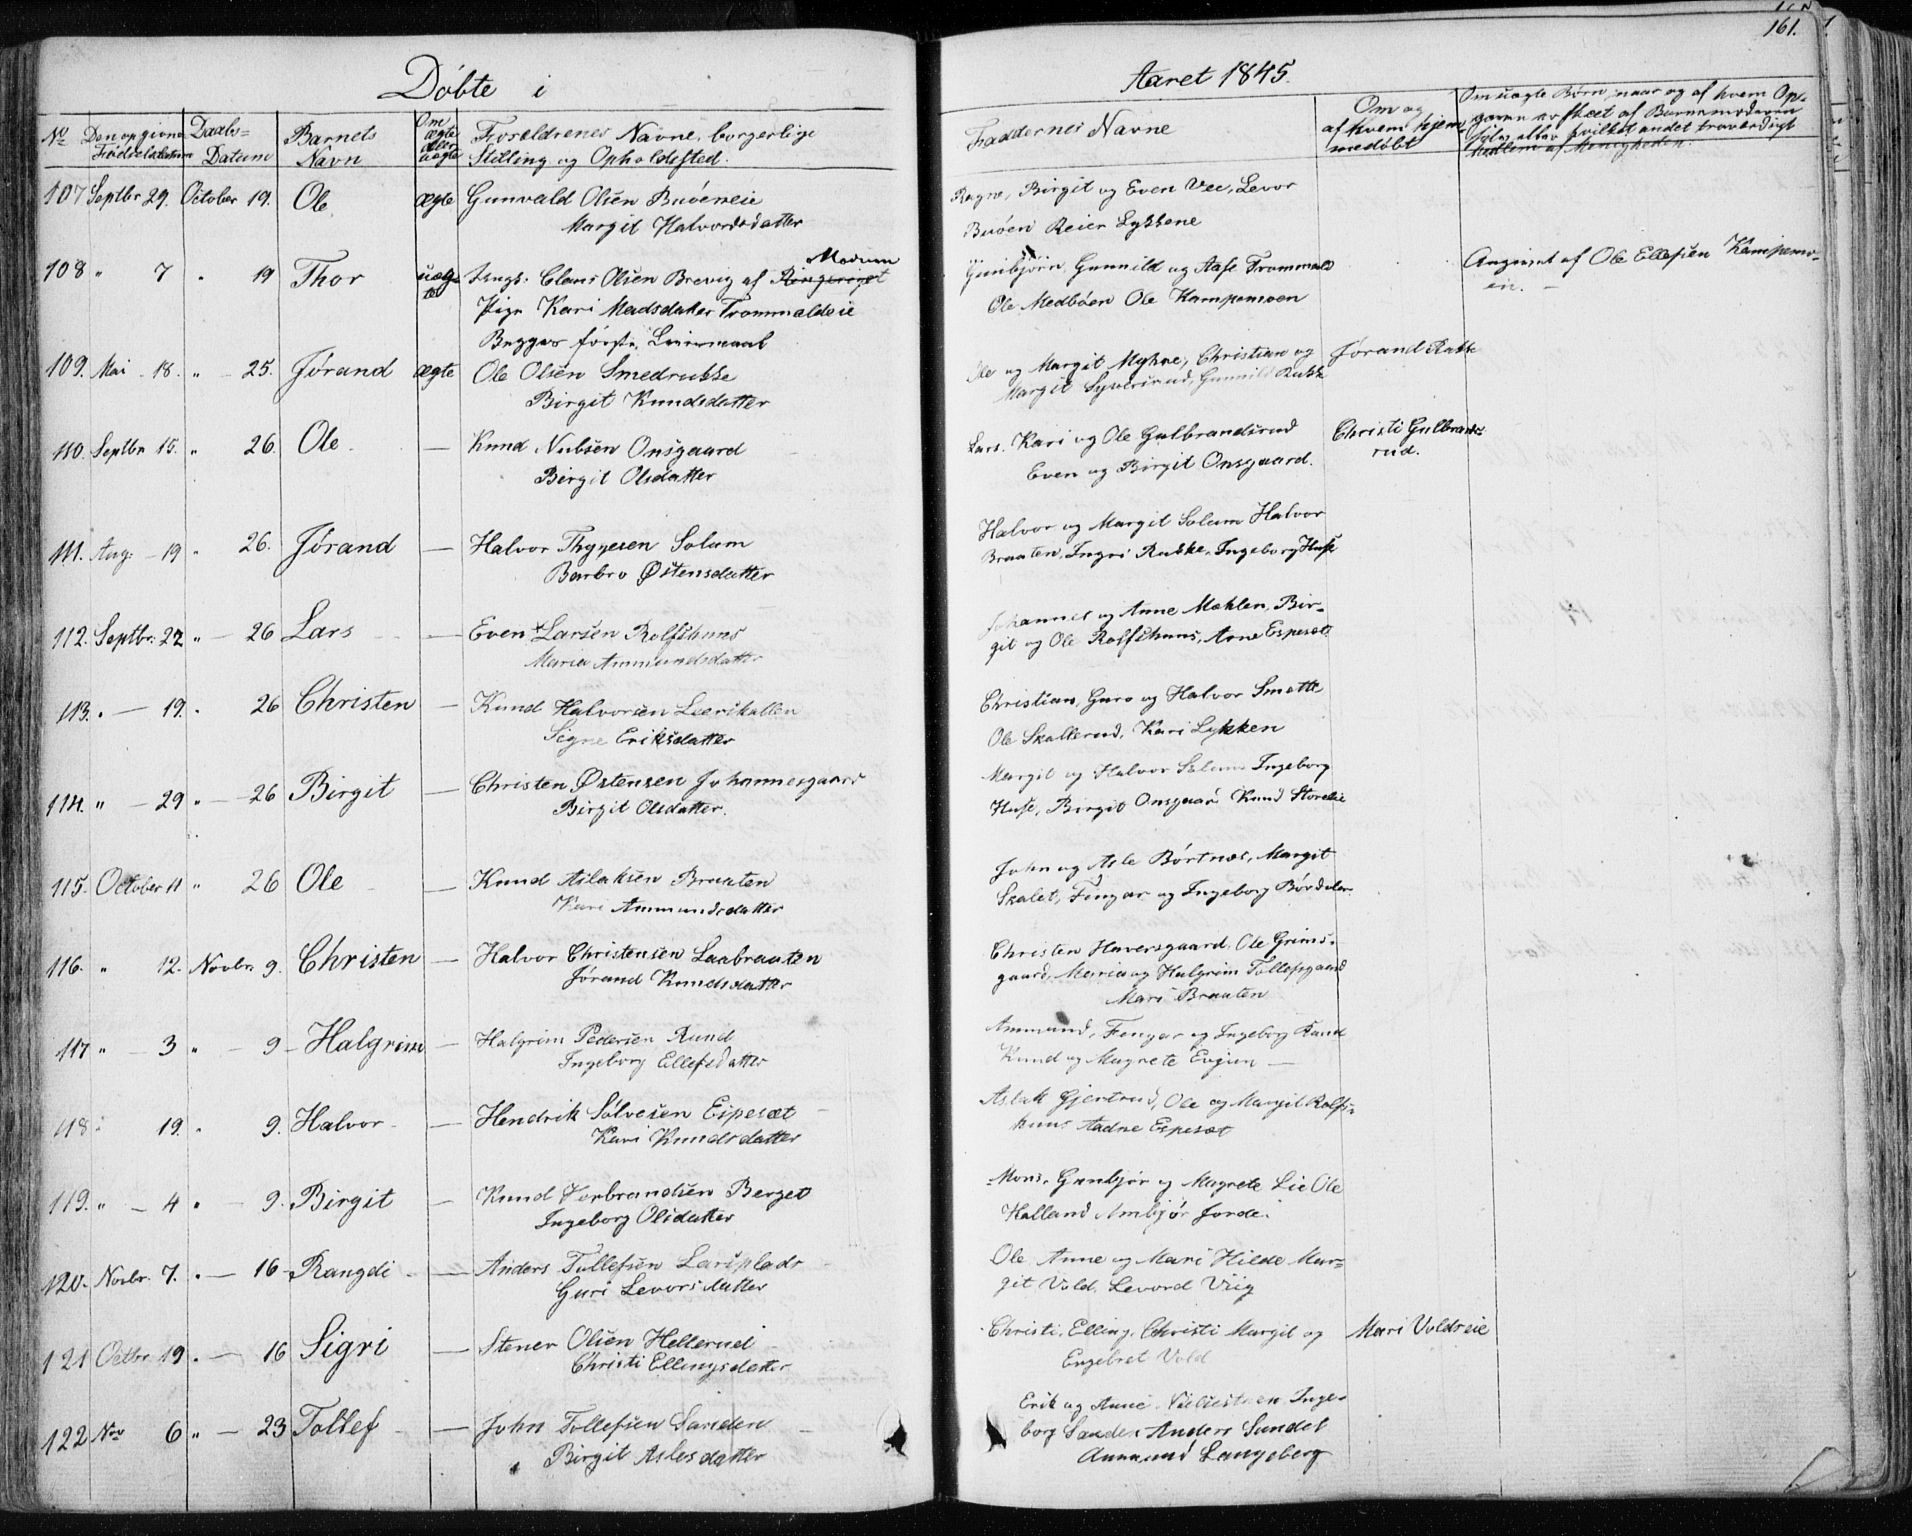 Døbte i
No
Den opgivne Fødselsdatum
Daabs-Datum
Barnets Navn
Om ægte eller uægte
Forældrenes Navne, borgerlige Stilling og Opholdsted.
107 Septbr 29. October 19. Ole ægte Gunvald Olsen Buøeneie
Margit Halvordsdatter
108 " 7 " 19 Thor uægte Ungk: Claus Olsen Brevig af Ringeriget Modum
Pige Kari Madsdatter Trommaldeie
Begges første Leiermaal
109. Mai 18. " 25. Jørand ægte Ole Olsen Smedrukke
Birgit Knudsdatter
110. Septbr 15. " 26. Ole. — Knud Nubsen Onsgaard
Birgit Olsdatter
111. Aug: 19 " 26. Jørand — Halvor Thygesen Solem
Barbro Østensdatter
112. Septbr. 22 " 26 Lars — Even Larsen Rolfshuus
Maria Ammundsdatter
113. " 19. " 26 Christen — Knud Halvorsen Leerskallen
Signe Eriksdatter
114. " 29 " 26 Birgit — Christen Østensen Johannesgaard
Birgit Olsdatter.
115. October 11 " 26 Ole — Knud Aslaksen Braaten
Kari Ammundsdatter
116. " 12. Novbr. 9. Christen — Halvor Christensen Laabraaten
Jørand Knudsdatter
117 " 3 " 9 Halgrim — Halgrim Pedersen Rund
Ingeborg Ellefsdatter
118 " 19. " 9. Halvor — Hendrik Sølvesen Espeset
Kari Knudsdatter
119. " 4 " 9. Birgit — Knud Torbrandsen Berget
Ingeborg Olsdatter
120. Novbr. 7. " 16 Rangdi — Anders Tollefsen Larsplads
Guri Levorsdatter
121 Octbr 19. " 16 Sigri — Stener Olsen Hellerud
Christi Ellingsdatter
122 Nov 6 " 23 Tollef — John Tollefsen Sanden
Birgit Aslesdatter
161.
Aaret 1845.
Faddernes Navne
Om og af hvem hjemmedøbt
Om uægte Børn, naar og af hvem Op-
gaven er skeet af Barnemoderen
selv eller hvilket andet troværdigt
Medlem af Menigheden.
Ragne, Birgit og Even Vee, Levor
Buøen Reier Lykkene
Gunbjørn Gunnild og Aase Trommald
Ole Medbøen Ole Kampemoen
Angivet af Ole Ellefsen Kampemo-
en. —
Ole og Margit Myhre, Christian og
Margit Syversrud, Gunnild Rukke
Jørand Rukke
Lars. Kari og Ole Gulbrandsrud
Even og Birgit Onsgaard.
Christi Gulbrands-
rud.
Halvor og Margit Solem Halvor
Braaten, Ingri Rukke, Ingeborg Huse
Johannes og Anne Mæhlen, Bir-
git og Ole Rolfshuus, Arne Espeset
Christian, Guro og Halvor Smette
Ole Skallerud, Kari Lykken
Margit og Halvor Solem Ingeborg
Huse, Birgit Onsgaard Knud Storeie
John og Asle Børtnes, Margit
Skalet, Fingar og Ingeborg Børdalen
Christen Haversgaard, Ole Grims-
gaard, Maria og Halgrim Tollefsgaard
Mari Braaten
Ammund, Fingar og Ingeborg Rund
Knud og Magrete Engien —
Aslak Gjertrud, Ole og Margit Rolfs-
huus Aadne Espeset
Mons, Gunbjør og Magrete Lie Ole
Halland Ambjør Jorde.
Ole Anne og Mari Hilde Mar-
git Vold. Levord Viig
Christi. Elling. Christi Margit og
Engebret Vold
Mari Voldseie
Erik og Anne Inge-
borg Sanden Anders Sundet
Ammund Langeberg